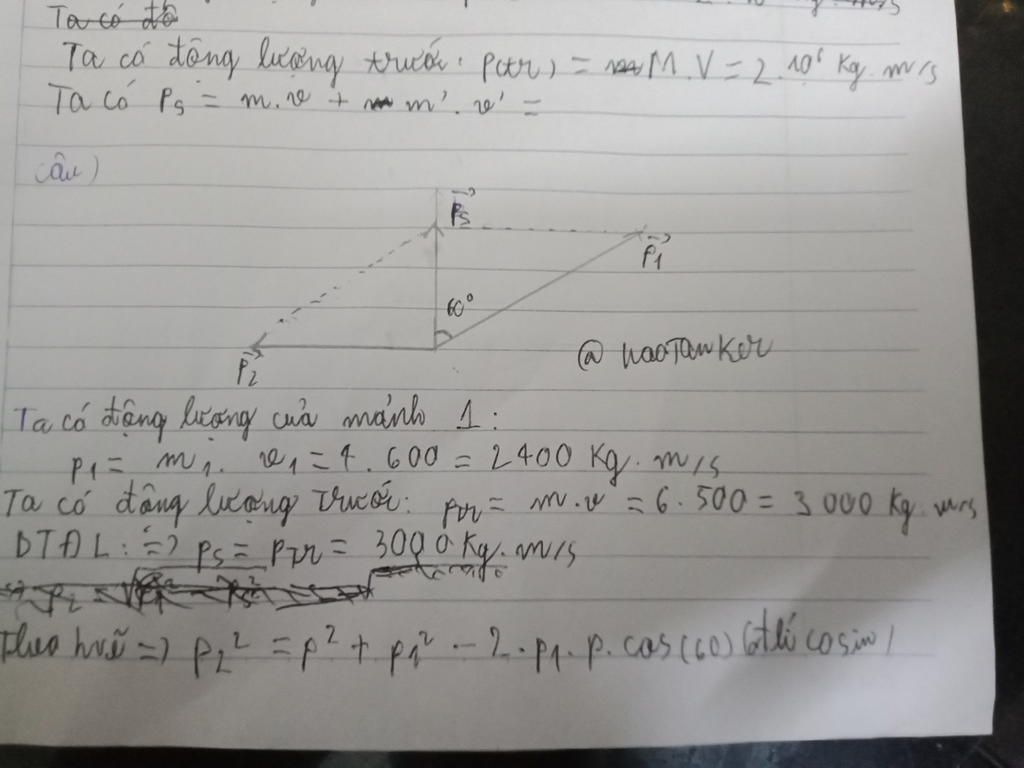 Ta có độ
Ta có động lượng trước: p(tr) = M.V = 2.10⁶ Kg.m/s
Ta có ps = m.v + m'.v' =
Câu)
ps
p1
60°
p2
Ta có động lượng của mảnh 1:
p1 = m1.v1 = 4.600 = 2400 Kg.m/s
Ta có động lượng trước: ptr = m.v = 6.500 = 3000 Kg.m/s
DTĐL: => ps = ptr = 3000 Kg.m/s
Theo hvẽ => p2² = p² + p1² - 2.p1.p.cos(60) (đlí cosin)